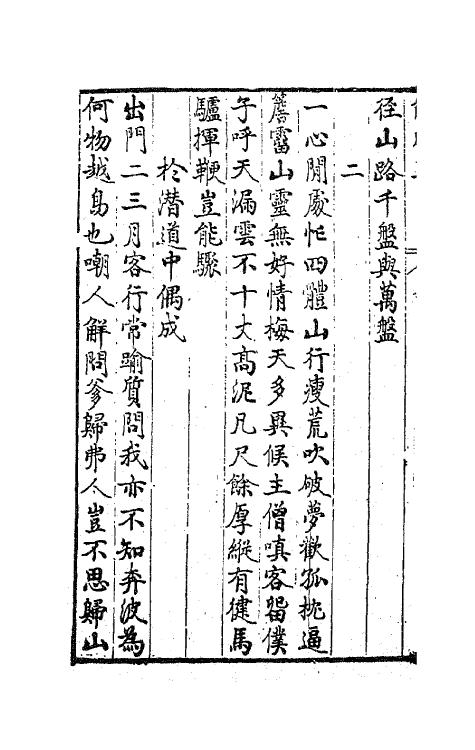 径山路千盤與萬盤
二
一心閒處忙四體山行瘦荒吹破夢歡孤枕逼
簷霤山靈無好情梅天多異候主僧嗔客留僕
子呼天漏雲不十丈高泥凡尺餘厚縱有健馬
驢揮鞭豈能驟
於潛道中偶成
出門二三月客行常踰質問我亦不知奔波為
何物越鳥也嘲人解問爹歸弗人豈不思歸山